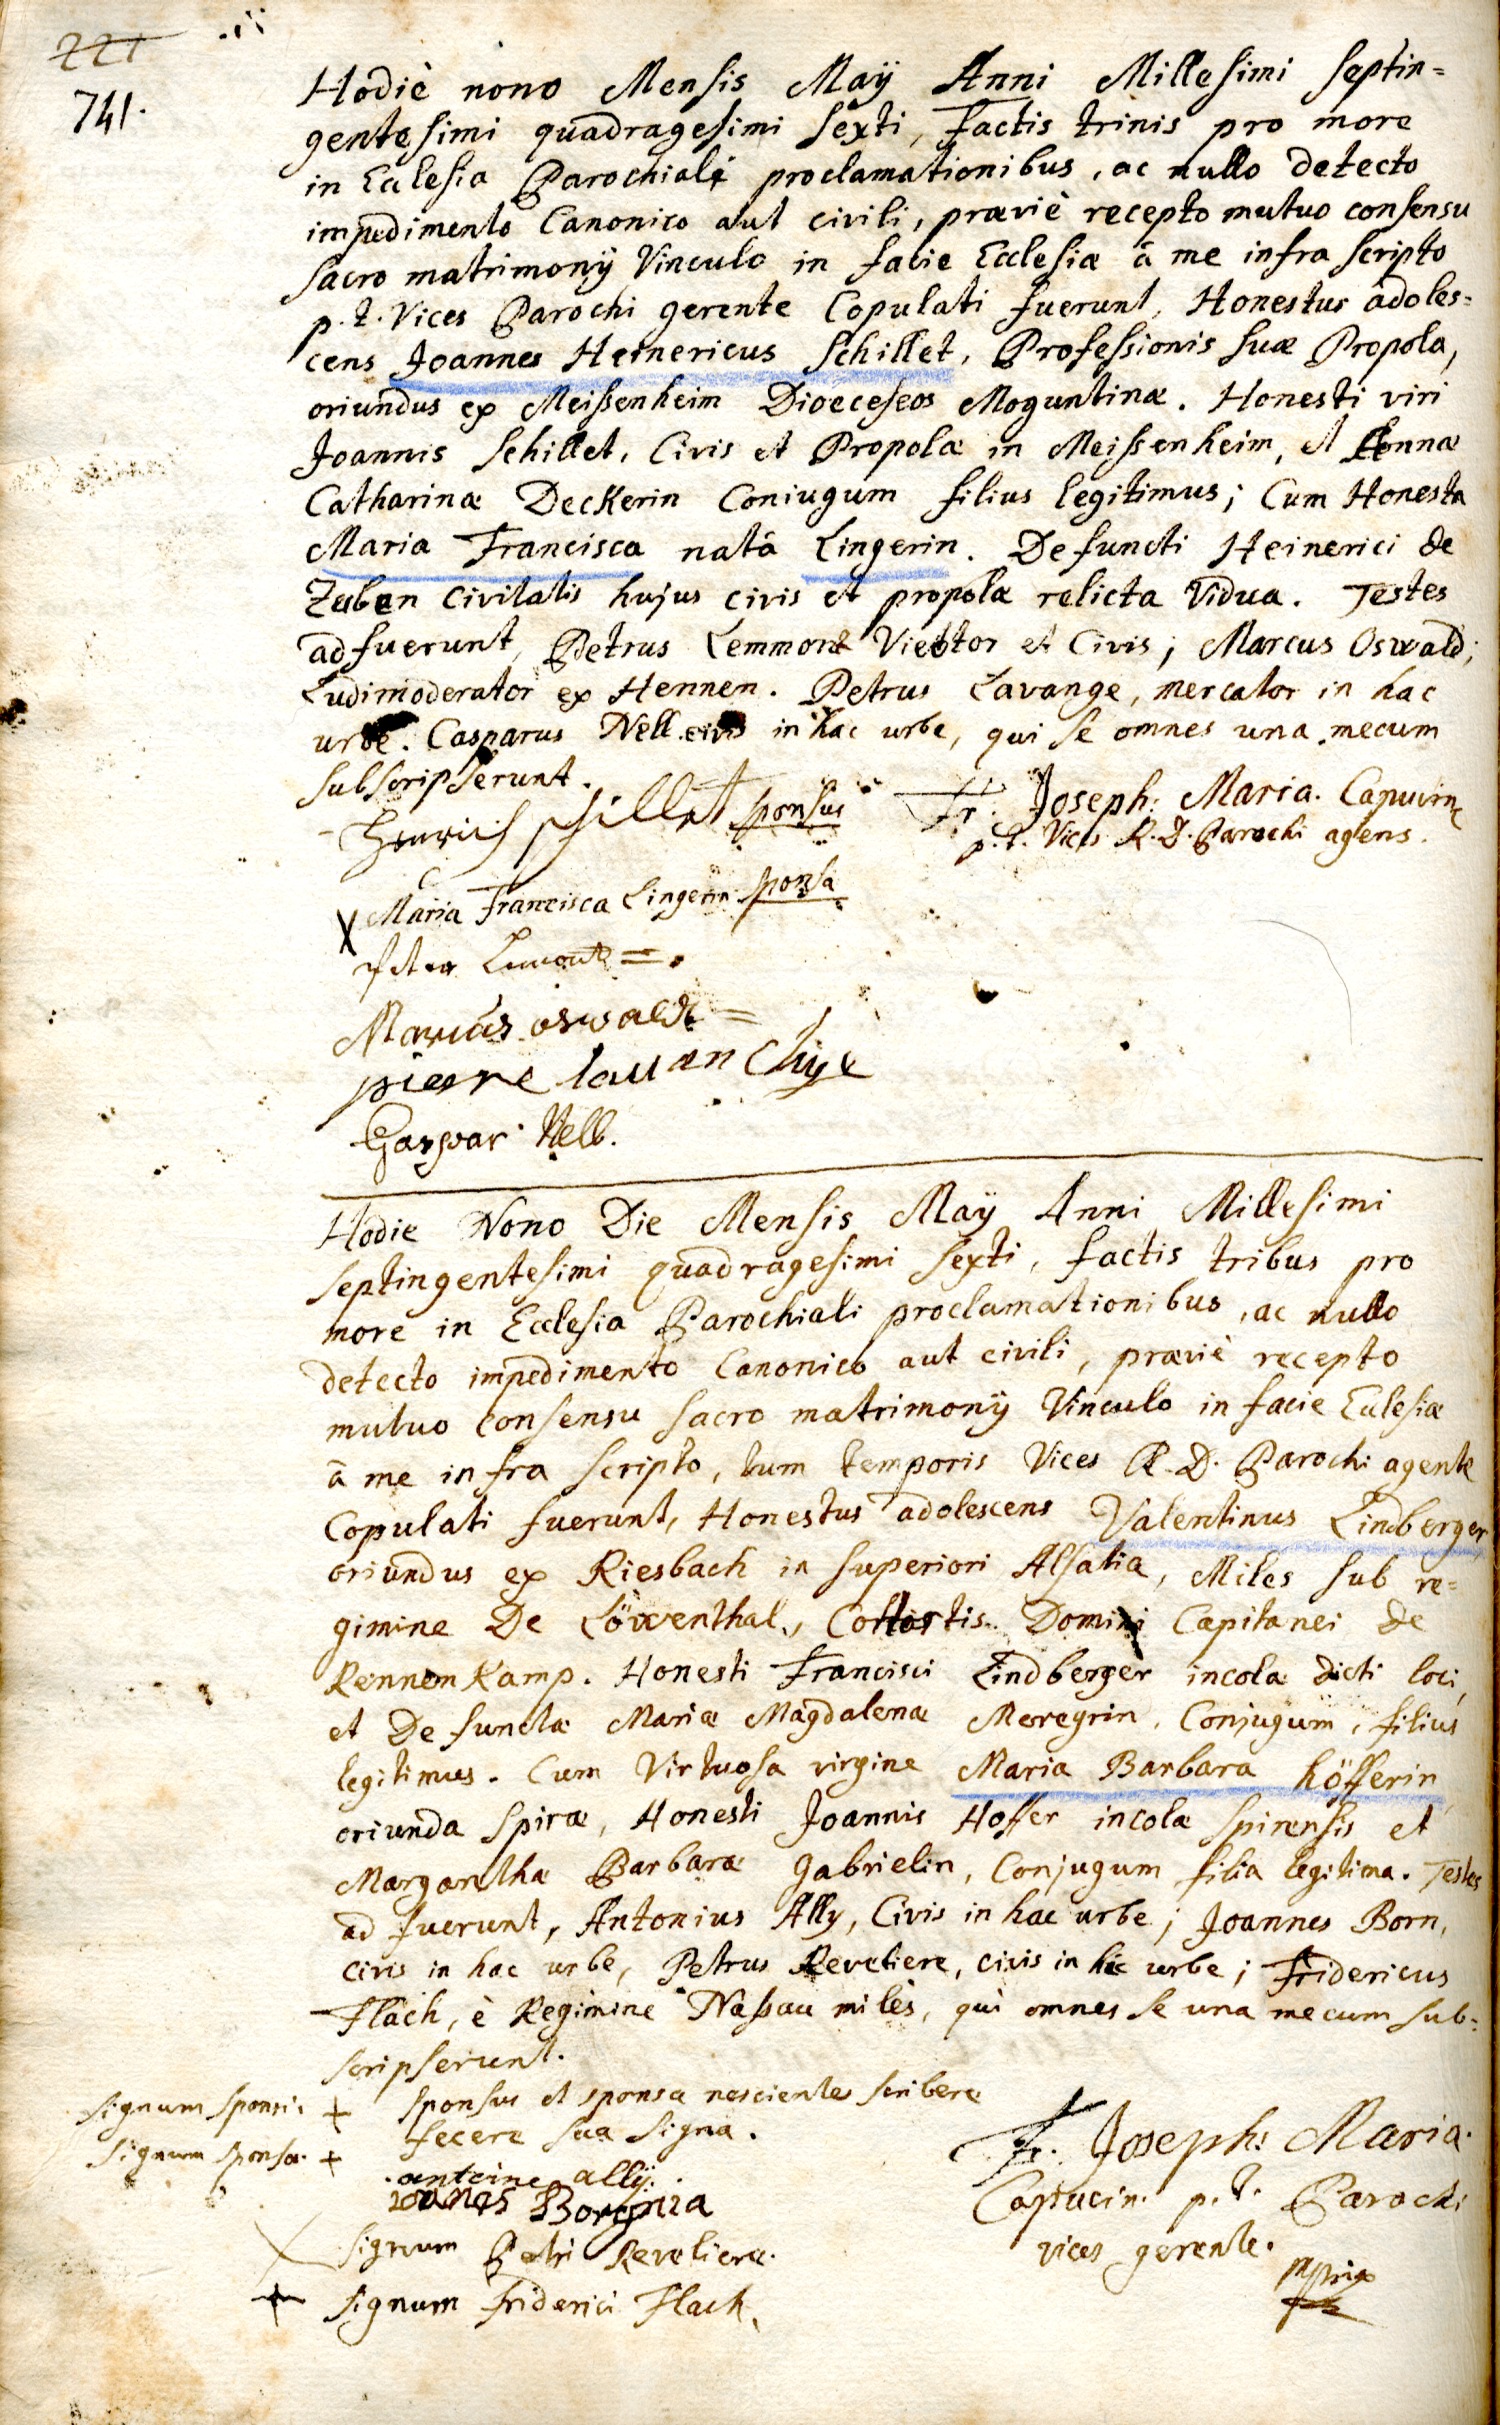 221
741.
Hodiè nono Mensis Maÿ Anni Millesimi septin=
gentesimi quadragesimi sexti, Factis trinis pro more
in Ecclesia Parochiali proclamationibus, ac nullo detecto
impedimento Canonico aut civili, præviè recepto mutuo consensu
sacro matrimonÿ Vinculo in facie Ecclesiæ â me infra scripto
p. t. Vices Parochi gerente Copulati fuerunt, Honestus adoles=
cens Joannes Heinericus Schillet, Professionis suæ Propola,
oriundus ex Meissenheim Dioeceseos Moguntinæ. Honesti viri
Joannis Schillet, Civis et Propolæ in Meissenheim, et Annæ
Catharinæ Deckerin Coniugum filius legitimus; Cum Honesta
Maria Francisca natâ Lingerin. Defuncti Heinerici de
Zuben Civitatis hujus civis et propolæ relicta Vidua. Testes
adfuerunt, Petrus Lemmont Viettor et Civis; Marcus Oswald;
Ludimoderator ex Hennen. Petrus Lavange, mercator in hac
urbe. Casparus Nell civis in hac urbe, qui se omnes una mecum
subscripserunt.
Henrich schillet sponsus
Fr. Joseph: Maria. Capucin
p. t. Vices R. D. Parochi agens.
Maria Francisca Lingerin sponsa
X
Peter Lemont =
Marcus oswaldt =
pierre lauanchye
Gaspar Nell.
Hodie Nono Die Mensis Maÿ Anni Millesimi
septingentesimi quadragesimi sexti, factis tribus pro
more in Ecclesia Parochiali proclamationibus, ac nullo
detecto impedimento Canonico aut civili, præviè recepto
mutuo consensu sacro matrimonÿ Vinculo in facie Ecclesiæ
â me infra scripto, tum temporis Vices R. D. Parochi agente
Copulati fuerunt, Honestus adolescens Valentinus Lindberger
oriundus ex Riesbach in superiori Alsatia, Miles sub re=
gimine De Löwenthal, Cohortis Domini Capitanei de
Rennenkamp. Honesti Francisci Lindberger incolæ dicti loci,
et Defunctæ Mariæ Magdalenæ Meregrin, Conjugum, filius
legitimus. Cum Virtuosa virgine Maria Barbara höfferin
oriunda Spiræ, Honesti Joannis Hoffer incolæ Spirensis et
Margarithæ Barbaræ Gabrielin, Conjugum filia legitima. Testes
ad fuerunt, Antonius Ally, Civis in hac urbe; Joannes Born,
civis in hac urbe, Petrus Reveliere, civis in hac urbe; Fridericus
Flach, è Regimine Nassau milès, qui omnes se una mecum sub=
scripserunt.
signum sponsi. + sponsus et sponsa nescientes scribere
signum sponsæ. + fecere sua signa.
antoine allÿ.
Fr. Joseph: Maria.
Capucin. p. t. Parochi
vices gerente.
signum Petri Reveliere.
+ signum Friderici Flach,